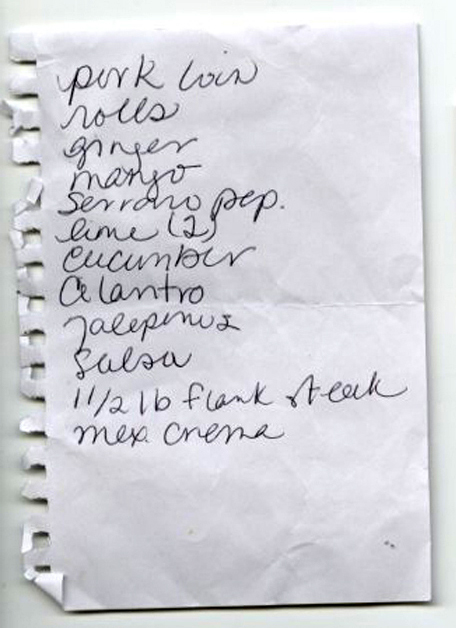 pork loin
rolls
ginger
mango
serrano pep.
lime (2)
cucumber
Cilantro
jalepenos
Salsa
1 1/2 lb flank steak
mex. crema